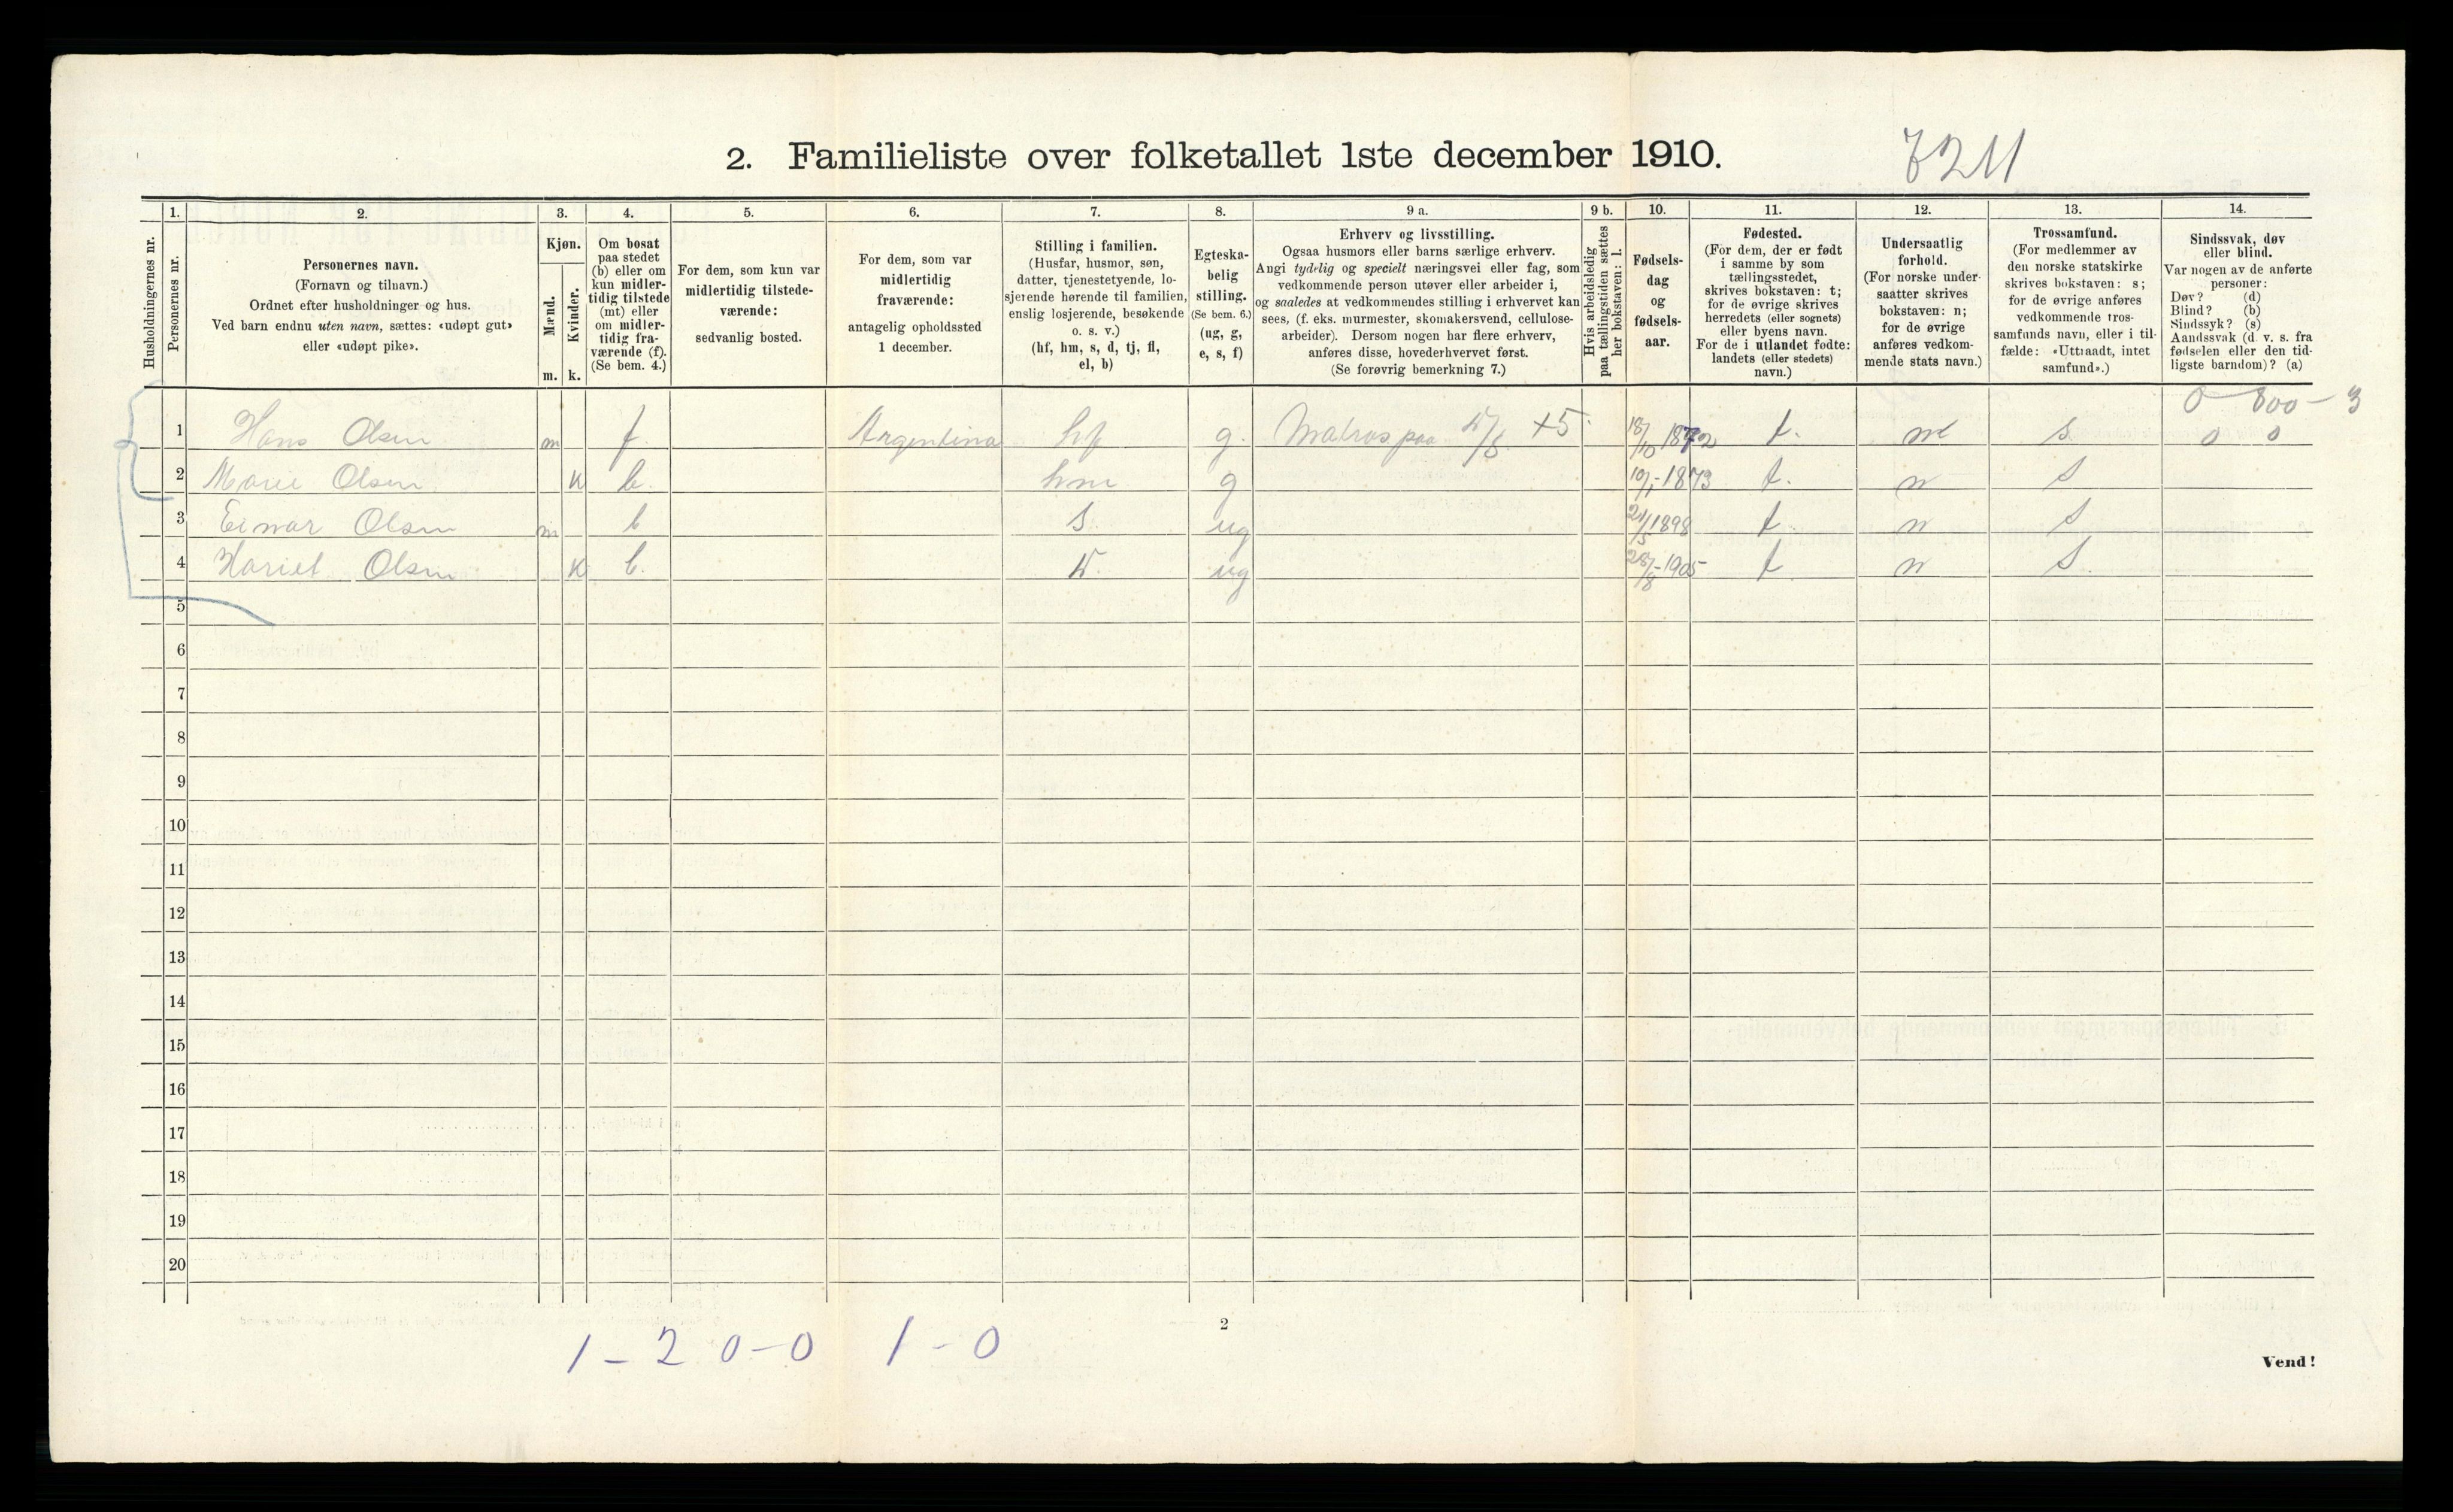 2. Familieliste over folketallet 1ste december 1910.
7211
1. 2. 3. 4. 5. 6. 7. 8. 9 a. 9 b. 10. 11. 12. 13. 14.
Husholdningernes nr.
Personernes nr.
Personernes navn.
(Fornavn og tilnavn.)
Ordnet efter husholdninger og hus.
Ved barn endnu uten navn, sættes: «udøpt gut»
eller «udøpt pike».
Kjøn.
Mænd.
Kvinder.
m. k.
Om bosat
paa stedet
(b) eller om
kun midler-
tidig tilstede
(mt) eller
om midler-
tidig fra-
værende (f).
(Se bem. 4.)
For dem, som kun var
midlertidig tilstede-
værende:
sedvanlig bosted.
For dem, som var
midlertidig
fraværende:
antagelig opholdssted
1 december.
Stilling i familien.
(Husfar, husmor, søn,
datter, tjenestetyende, lo-
sjerende hørende til familien,
enslig losjerende, besøkende
o. s. v.)
(hf, hm, s, d, tj, fl,
el, b)
Egteska-
belig
stilling.
(Se bem. 6.)
(ug, g,
e, s, f)
Erhverv og livsstilling.
Ogsaa husmors eller barns særlige erhverv.
Angi tydelig og specielt næringsvei eller fag, som
vedkommende person utøver eller arbeider i,
og saaledes at vedkommendes stilling i erhvervet kan
sees, (f. eks. murmester, skomakersvend, cellulose-
arbeider). Dersom nogen har flere erhverv,
anføres disse, hovederhvervet først.
(Se forøvrig bemerkning 7.)
Hvis arbeidsledig
paa tællingstiden sættes
her bokstaven: l.
Fødsels-
dag
og
fødsels-
aar.
Fødested.
(For dem, der er født
i samme by som
tællingsstedet,
skrives bokstaven: t;
for de øvrige skrives
herredets (eller sognets)
eller byens navn.
For de i utlandet fødte:
landets (eller stedets)
navn.)
Undersaatlig
forhold.
(For norske under-
saatter skrives
bokstaven: n;
for de øvrige
anføres vedkom-
mende stats navn.)
Trossamfund.
(For medlemmer av
den norske statskirke
skrives bokstaven: s;
for de øvrige anføres
vedkommende tros-
samfunds navn, eller i til-
fælde: «Uttraadt, intet
samfund».)
Sindssvak, døv
eller blind.
Var nogen av de anførte
personer:
Døv? (d)
Blind? (b)
Sindssyk? (s)
Aandssvak (d. v. s. fra
fødselen eller den tid-
ligste barndom)? (a)
0 800 - 3
1 Hans Olsen m f. Argentina hf g. Matros paa D/S +5 18/10 1872 t. n s 0 0
2 Marie Olsen. K b. hm g 10/1-1873 t. n s
3 Einar Olsen m b s. ug 24/5 1898 t n s
4 Hariet Olsen K b. d. ug 28/8-1905 t n s.
5
6
7
8
9
10
11
12
13
14
15
16
17
18
19
20
2
1 - 2 0-0 1 - 0
Vend!